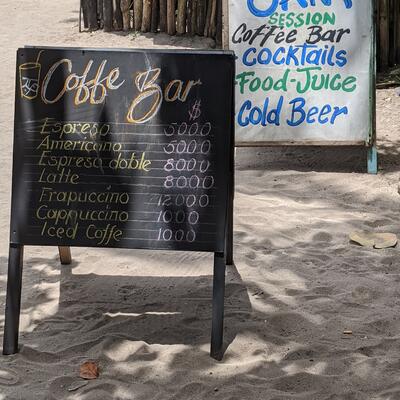 Coffe Bar
$
Espreso 5000
Americano 5000
Espreso doble 8000
Latte 8000
Frapuccino 12000
Cappuccino 7000
Iced Coffe 1000
SESSION
Coffee Bar
COCKTAILS
Food-Juice
Cold Beer